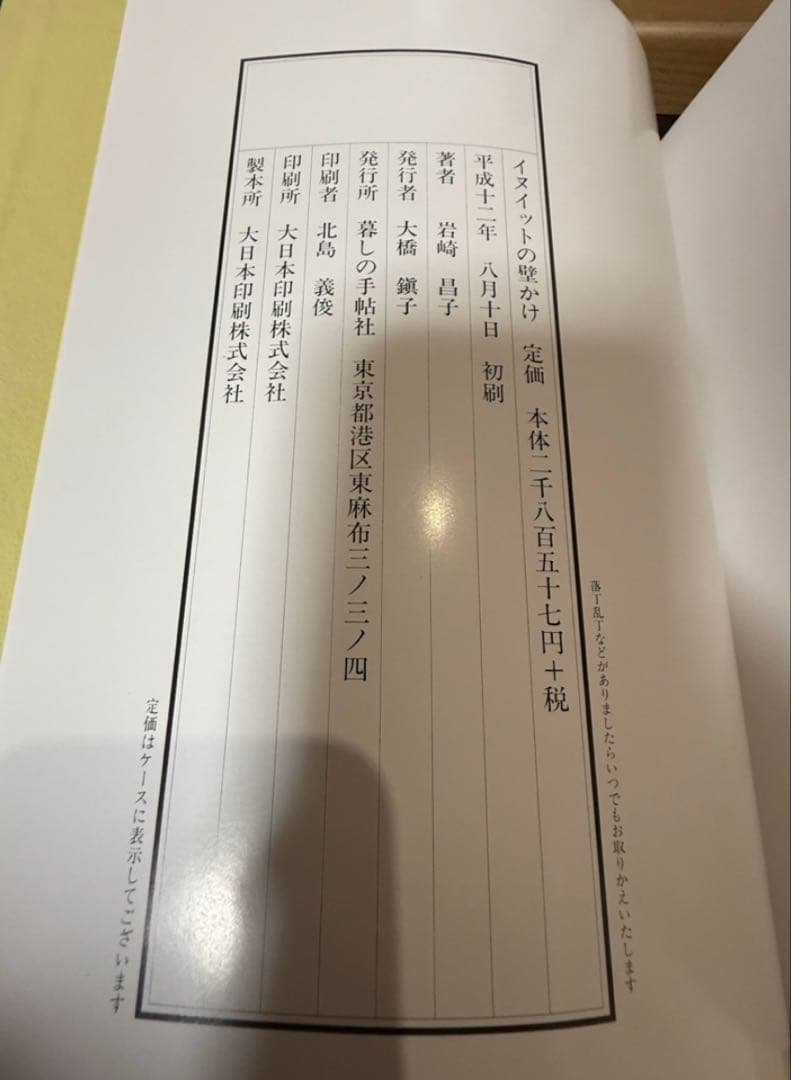 落丁乱丁などがありましたらいつでもお取りかえいたします
イヌイットの壁かけ 定価 本体二千八百五十七円+税
平成十二年 八月十日 初刷
著者 岩崎 昌子
発行者 大橋 鎭子
発行所 暮しの手帖社 東京都港区東麻布三ノ三ノ四
印刷者 北島 義俊
印刷所 大日本印刷株式会社
製本所 大日本印刷株式会社
定価はケースに表示してございます